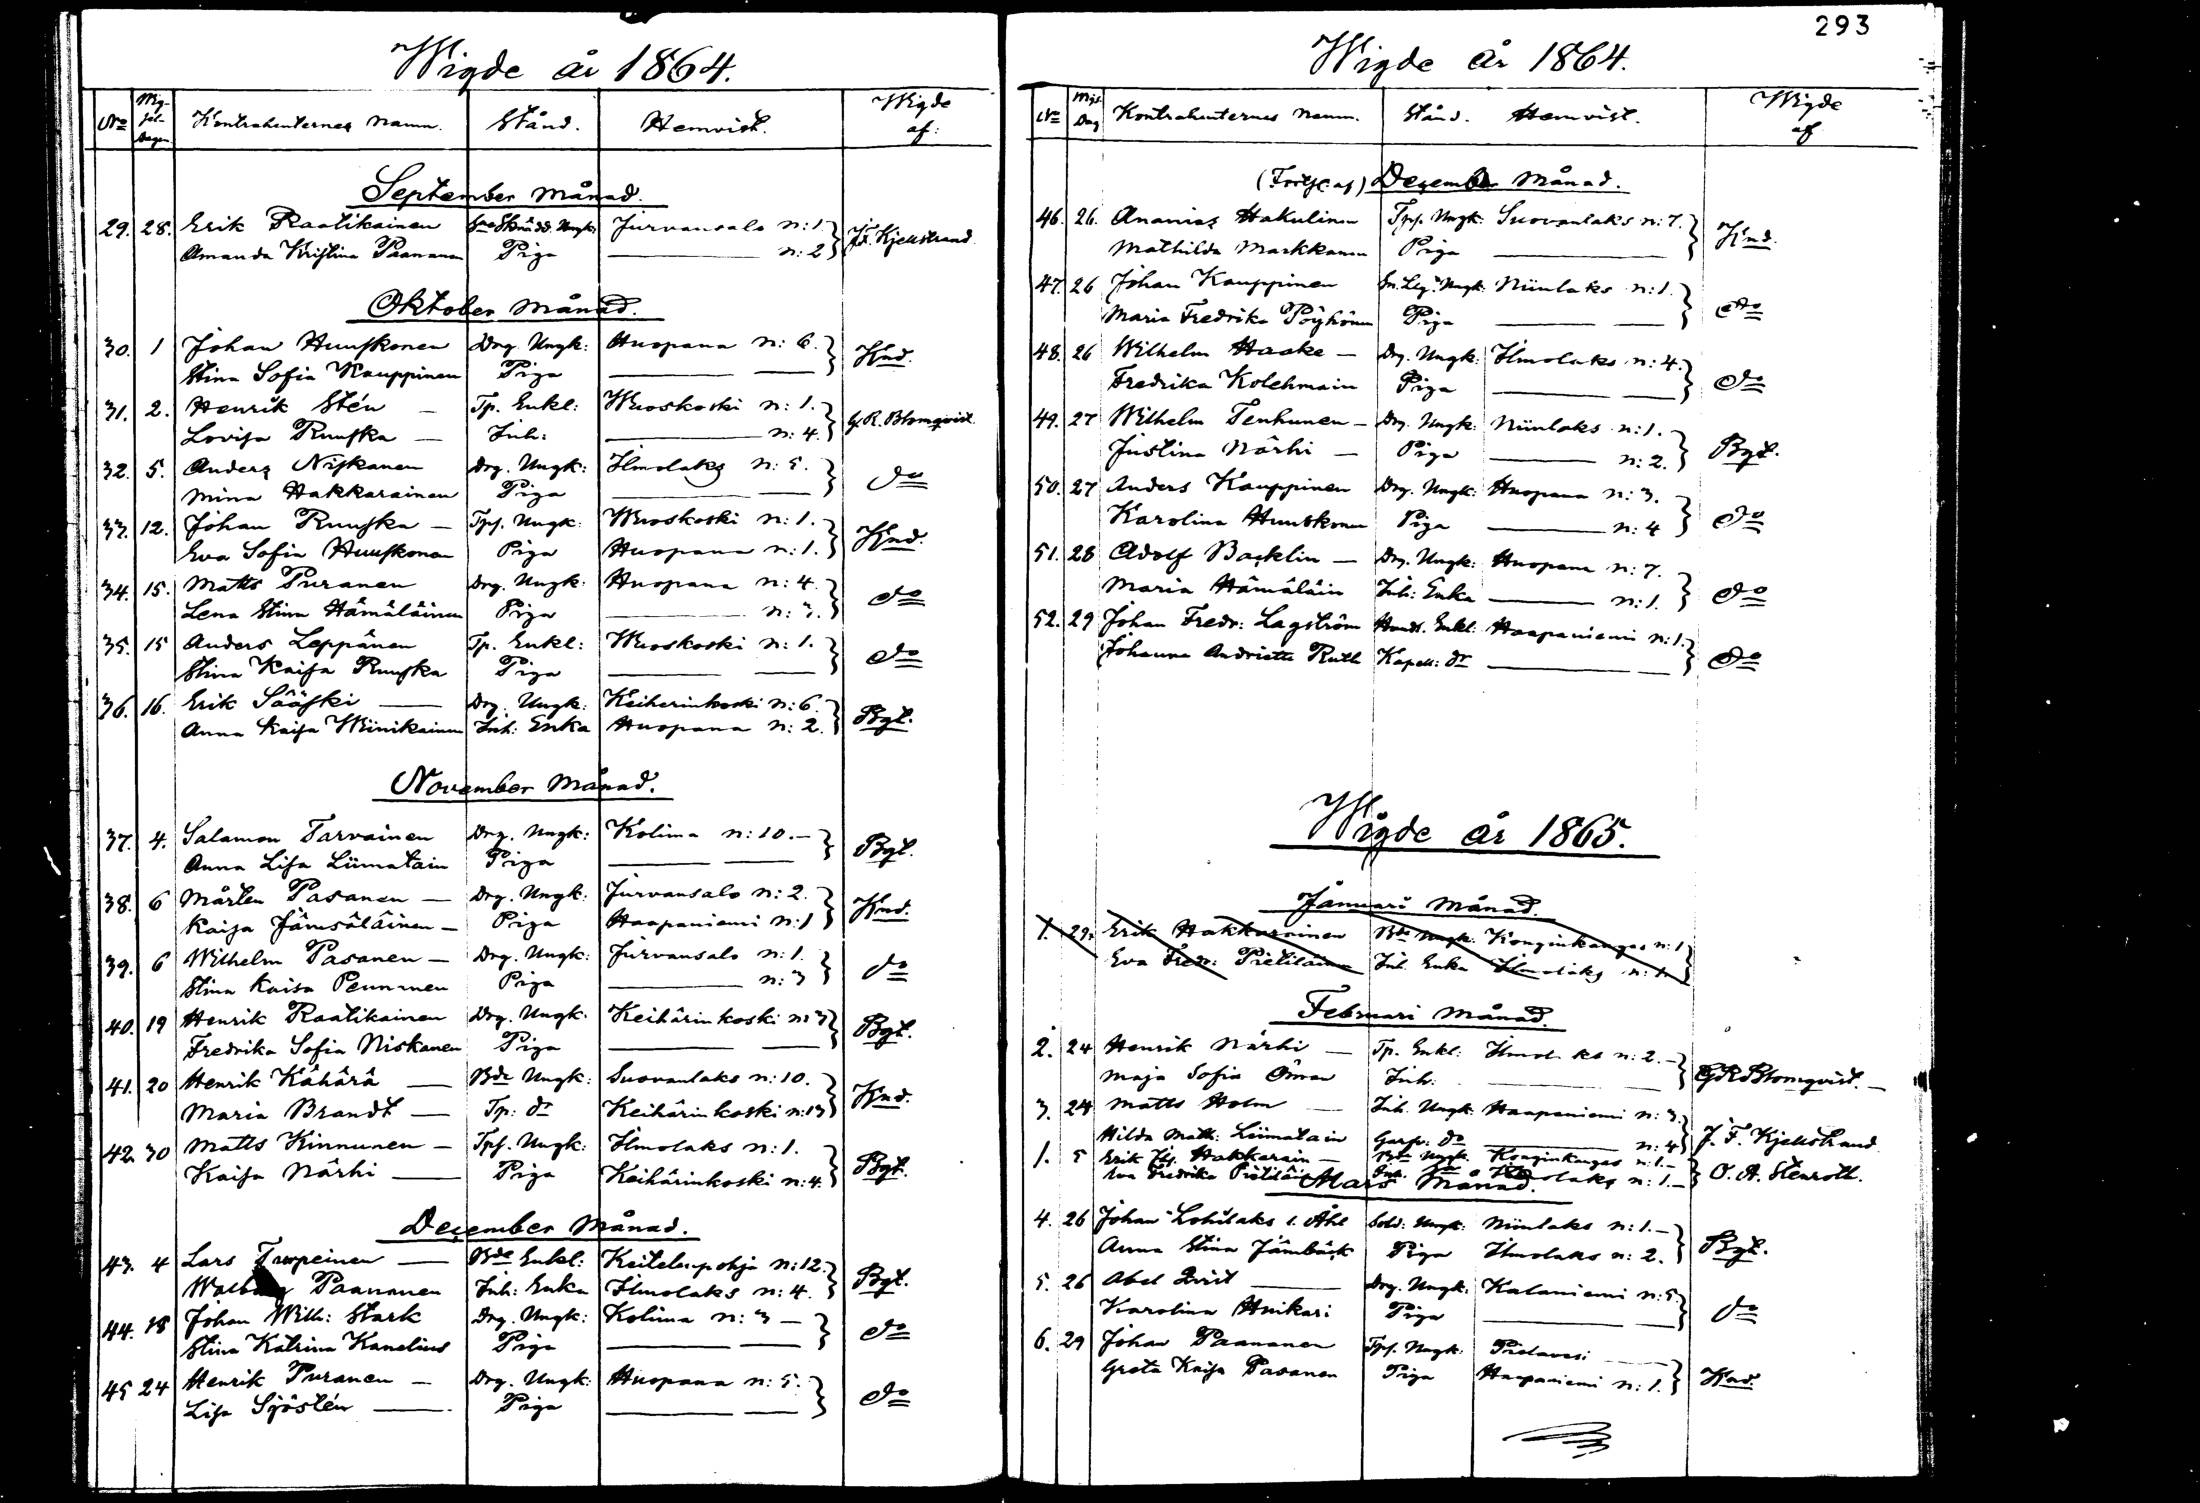 Wigde år 1864.
No Wigsel-Dagen Kontrahenternes namn. Stånd. Hemvist. Wigde af:
September månad.
29. 28. Erik Raatikainen Ungk: Jurvansalo n: 1. J. F. Kjellstrand
Amanda Kristina Paananen Piga n: 2
Oktober månad.
30. 1 Johan Huuskonen Drg. Ungk: Huopana n: 6. Knd.
Stina Sofia Kauppinen Piga
31. 2. Henrik Stén Tp. Enkl: Wuoskoski n: 1. G. R. Blomqvist
Lovisa Ruuska Inh: n: 4.
32. 5. Anders Niskanen Drg. Ungk: Ilmolaks n: 5. do
Mina Hakkarainen Piga
33. 12. Johan Ruuska Tpf. Ungk: Wuoskoski n: 1. Knd.
Eva Sofia Huuskonen Piga Huopana n: 1.
34. 15. Matts Puranen Drg. Ungk: Huopana n: 4. do
Lena Stina Hämäläinen Piga n: 3.
35. 15 Anders Leppänen Tp. Enkl: Wuoskoski n: 1. do
Stina Kaisa Ruuska Piga
36. 16. Erik Sääski Drg. Ungk: Keiherinkoski n: 6. Bgt.
Anna Kaisa Wiinikainen Inh: Enka Huopana n: 2.
November månad.
37. 4. Salamon Tarvainen Drg. Ungk: Kolima n: 10. Bgt.
Anna Lisa Liimatain Piga
38. 6 Mårten Pasanen Drg. Ungk: Jurvansalo n: 2. Knd.
Kaisa Jämsäläinen Piga Haapaniemi n: 1
39. 6 Wilhelm Pasanen Drg. Ungk: Jurvansalo n: 1. do
Stina Kaisa Piga n: 3
40. 19 Henrik Raatikainen Drg. Ungk: Keihärinkoski n: 3 Bgt.
Fredrika Sofia Niskanen Piga
41. 20 Henrik Kähärä Bde Ungk: Suovanlaks n: 10. Knd.
Maria Brandt Tp: dr Keihärinkoski n: 13
42. 30 Matts Kinnunen Tpf. Ungk: Ilmolaks n: 1. Bgt.
Kaisa Närhi Piga Keihärinkoski n: 4.
December månad.
43. 4 Lars Bde Enkl: Keitelepohja n: 12. Bgt.
Paananen Inh: Enka Ilmolaks n: 4.
44. 18 Johan Wilh: Stark Drg. Ungk: Kolima n: 3 do
Stina Katrina Kanelius Piga
45 24 Henrik Puranen Drg. Ungk: Huopana n: 5. do
Lisa Sjöstén Piga
293
Wigde år 1864.
No Wigs. Dag Kontrahenternes namn. Stånd. Hemvist. Wigde af
(Forts: af) December månad.
46. 26. Ananias Hakulinen Tpf. Ungk: Suovanlaks n: 7. Knd.
Mathilda Markkanen Piga
47. 26 Johan Kauppinen Ungk: Niinlaks n: 1. do
Maria Fredrika Pöyhönen Piga
48. 26 Wilhelm Haake Drg. Ungk: Ilmolaks n: 4. do
Fredrika Kolehmain Piga
49. 27 Wilhelm Tenhunen Drg. Ungk: Niinlaks n: 1. Bgt.
Justina Närhi Piga n: 2.
50. 27 Anders Kauppinen Drg. Ungk: Huopana n: 3. do
Karolina Huuskonen Piga n: 4
51. 28 Adolf Backlin Drg. Ungk: Huopana n: 7. do
Maria Hämäläin Inh: Enka n: 1.
52. 29 Johan Fredr: Lagström Handl. Enkl: Haapaniemi n: 1. do
Johanna Andriette Ruth Kapell: dr
Wigde år 1865.
Januari månad.
1. 29. Erik Hakkarainen Bde Ungk: Konginkangas n: 1
Eva Fredr: Pietiläinen Inh. Enka Ilmolaks n: 1.
Februari månad.
2. 24 Henrik Närhi Tp. Enkl: Ilmolaks n: 2. G R Blomqvist.
Maja Sofia Öman Inh:
3. 24 Matts Holm Inh. Ungk: Haapaniemi n: 3. J. F. Kjellstrand
Hilda Math: Liimatain Garfv: do n: 4
1. 5 Erik Hakkarain Bde Ungk. Konginkangas n: 1. O. A. Stenroth.
Eva Fredrika Ilmolaks n: 1.
Mars Månad.
4. 26 Johan Lohilaks l. Åhl Sold: Ungk: Niinlaks n: 1. Bgt.
Anna Stina Jämbäck Piga Ilmolaks n: 2.
5. 26 Abel Qvist Drg. Ungk: Kalaniemi n: 5. do
Karolina Huikari Piga
6. 29 Johan Paananen Tpf. Ungk: Pielavesi Knd.
Greta Kaisa Pasanen Piga Haapaniemi n: 1.